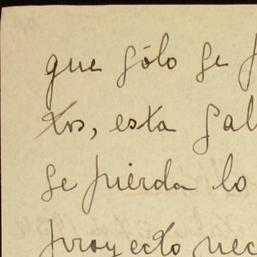 que sólo se
tos, esta gal
se pierda lo
proyecto nec